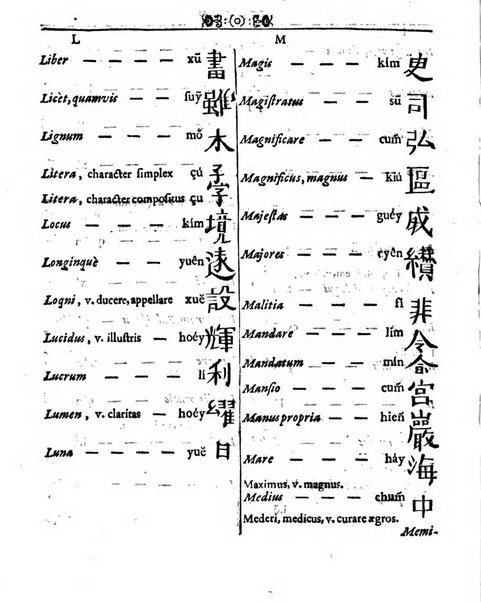 (o)
L
Liber — — — — xū 書
Licèt, quamvis — — ſuȳ 雖
Lignum — — — mǒ 木
Litera, character ſimplex çú 子
Litera, character compoſitus çu 字
Locus — — — kím 境
Longinquè — — yuên 遠
Loqni, v. ducere, appellare xuě 設
Lucidus, v. illuſtris — hoéy 輝
Lucrum — — — lí 利
Lumen, v. claritas — hoéy 耀
Luna — — — yuě 日
M
Magis — — — kím 更
Magiſtratus — — sū 司
Magnificare — — cum̄ 弘
Magnificus, magnus — kiú 區
Majeſtas — — — guéy 威
Majores — — — cyên
Malitia — — — fi 非
Mandare — — — lím 令
Mandatum — — mín 命
Manſio — — — cum̄ 宮
Manus propria — — hien̄ 巖
Mare — — — háy 海
Maximus, v. magnus.
Medius — — — chum̄ 中
Mederi, medicus, v. curare ægros.
Memi-